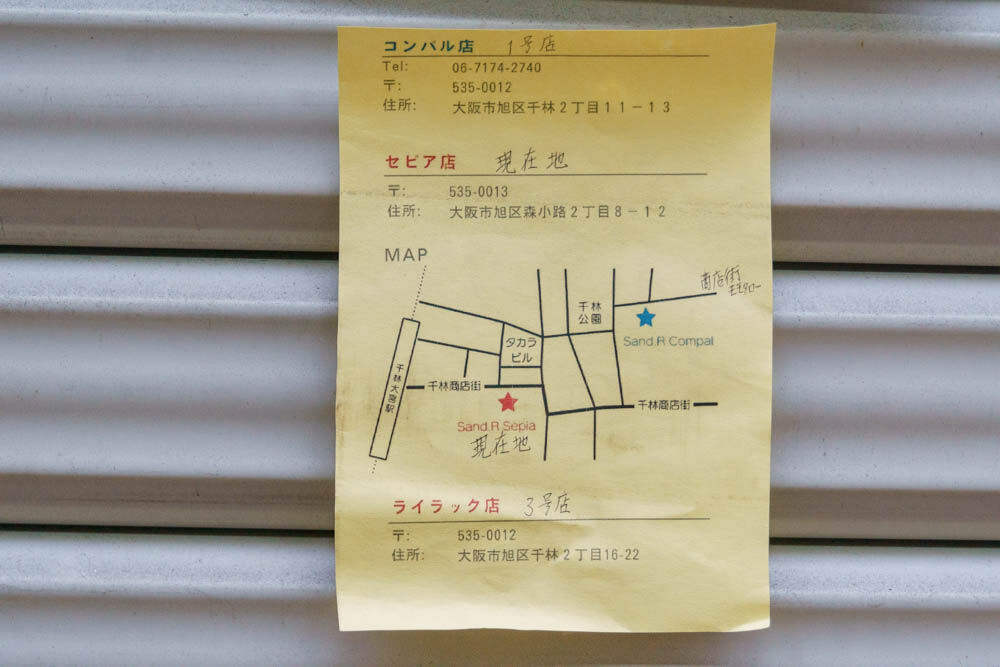 コンパル店 1号店
Tel: 06-7174-2740
〒: 535-0012
住所: 大阪市旭区千林2丁目11-13
セピア店 現在地
〒: 535-0013
住所: 大阪市旭区森小路2丁目8-12
MAP
商店街
モモタロー
千林
公園
Sand.R Compal
タカラ
ビル
千林大宮駅
千林商店街
千林商店街
Sand.R Sepia
現在地
ライラック店 3号店
〒: 535-0012
住所: 大阪市旭区千林2丁目16-22